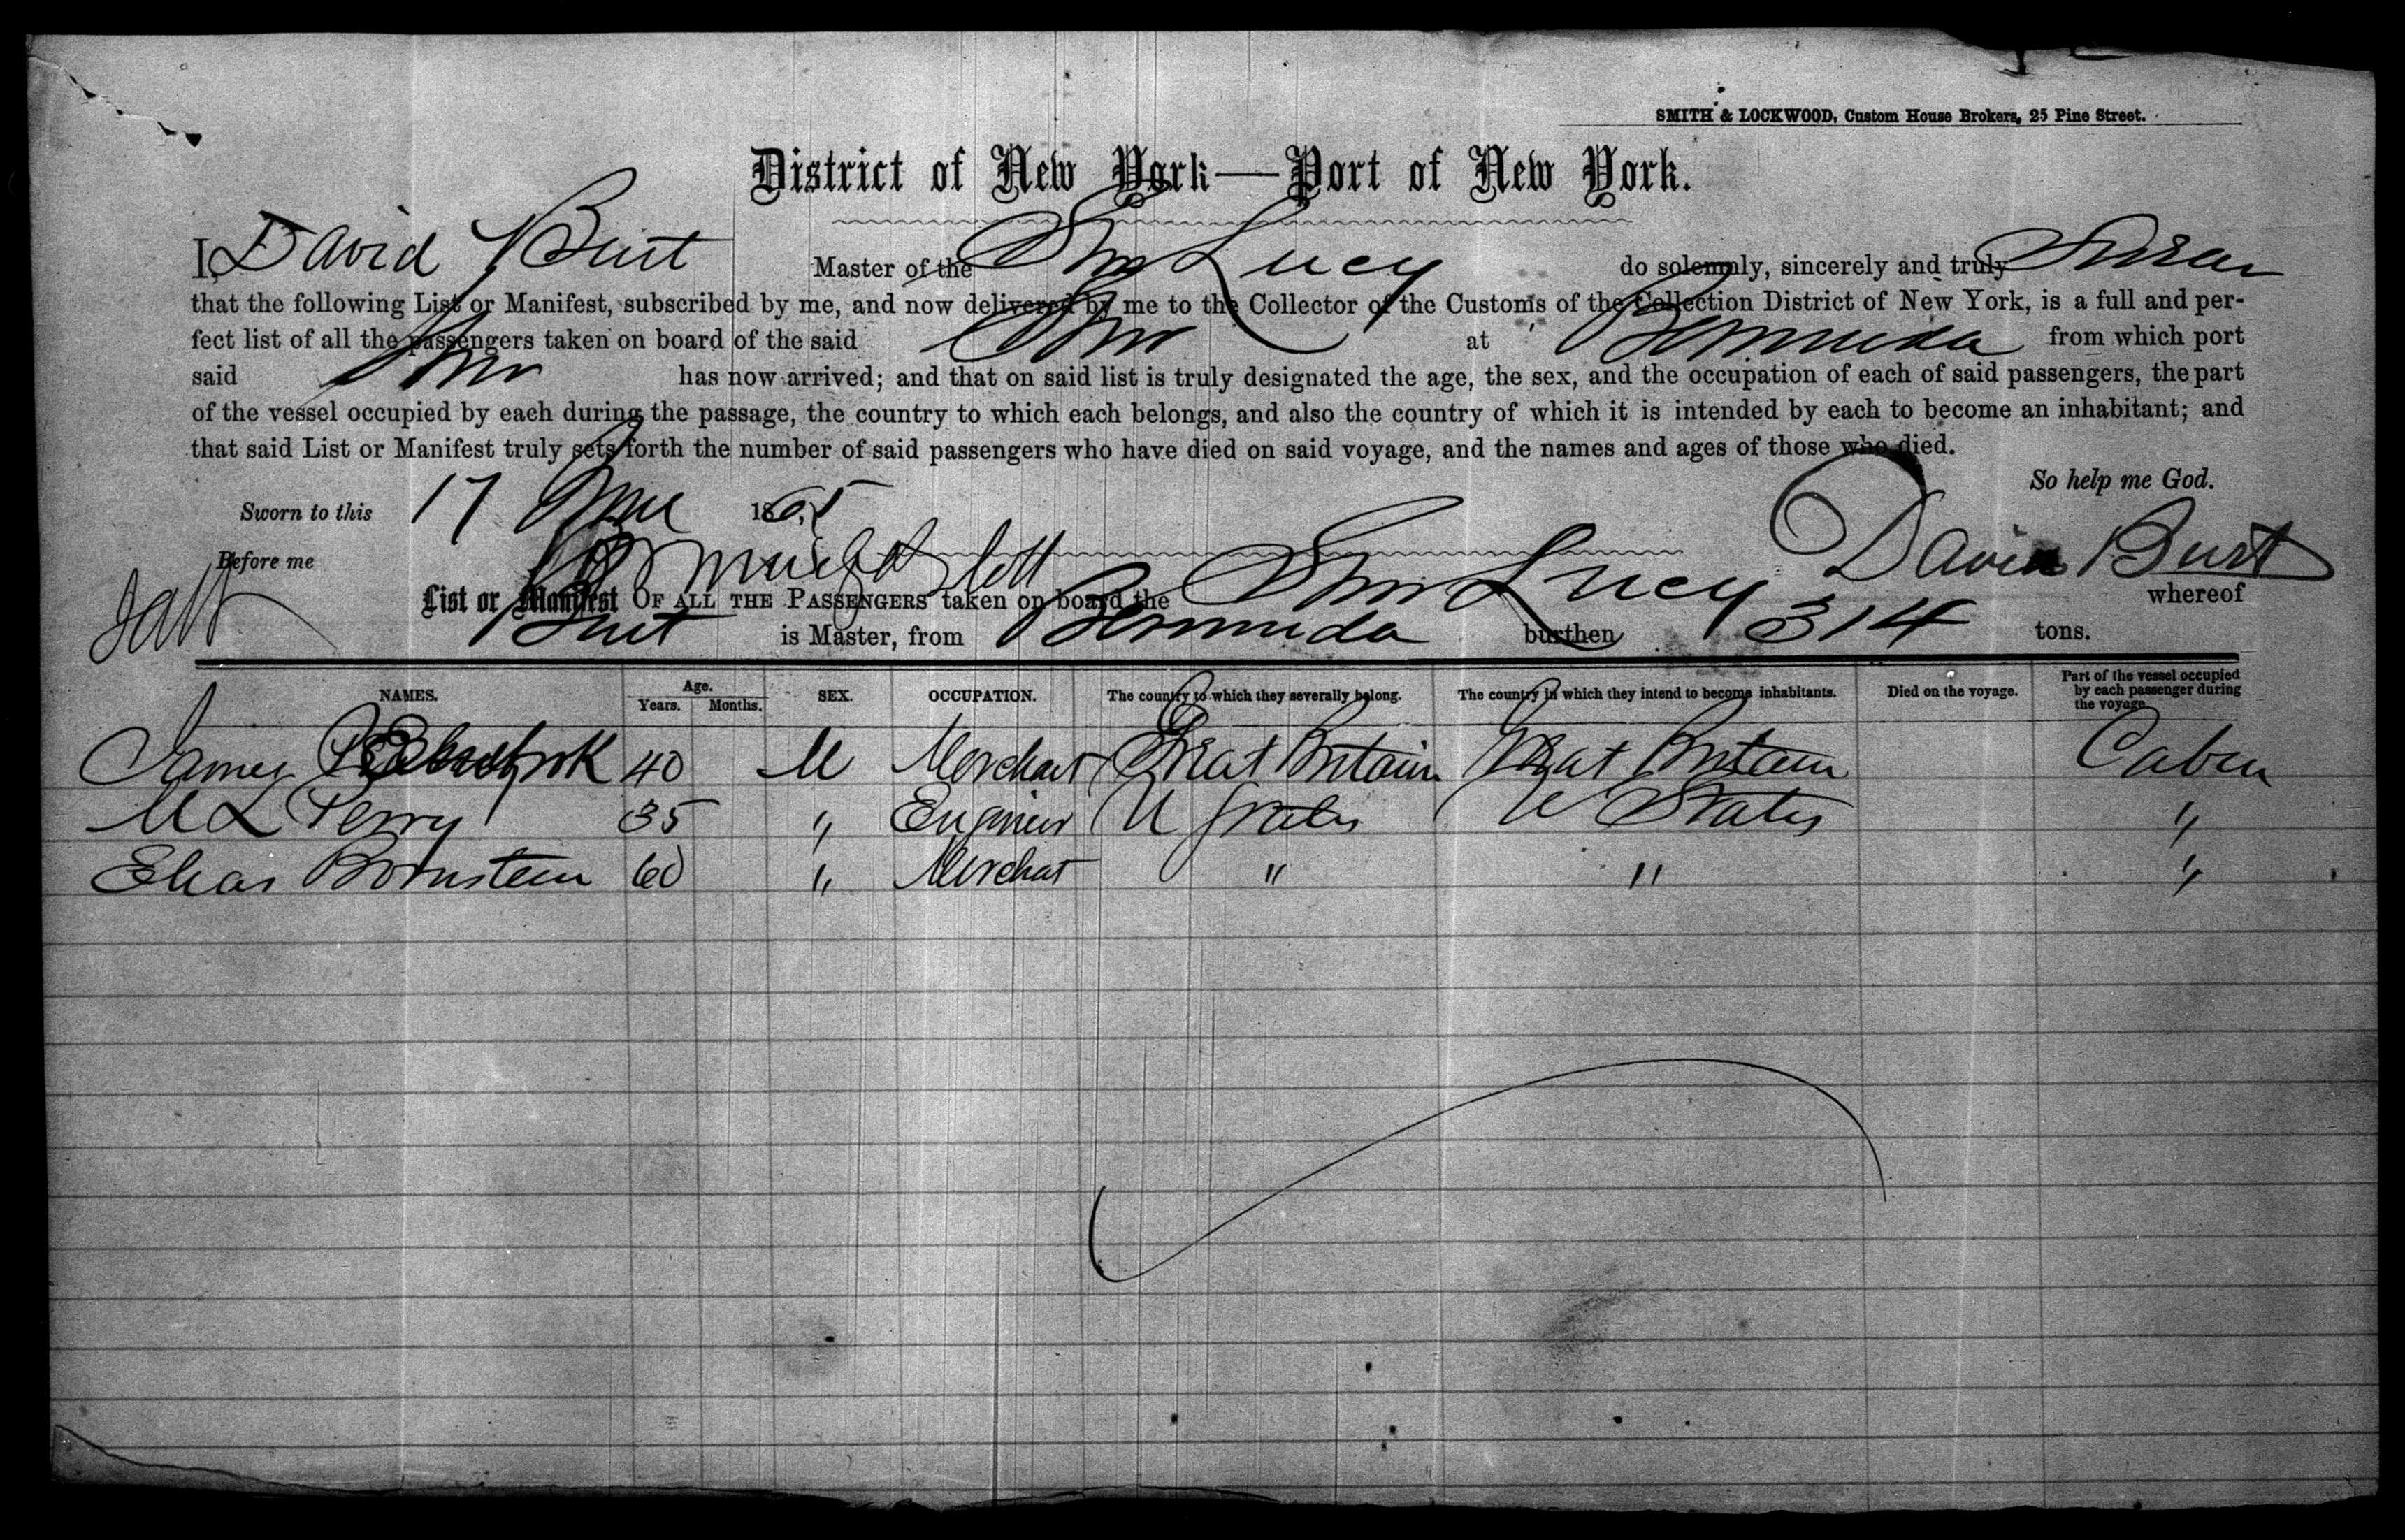 SMITH & LOCKWOOD, Custom House Brokers, 25 Pine Street.
District of New York—Port of New York.
I, David Burt Master of the Schr Lucy do solemnly, sincerely and truly Swear
that the following List or Manifest, subscribed by me, and now delivered by me to the Collector of the Customs of the Collection District of New York, is a full and per-
fect list of all the passengers taken on board of the said Schr at Bermuda from which port
said Schr has now arrived; and that on said list is truly designated the age, the sex, and the occupation of each of said passengers, the part
of the vessel occupied by each during the passage, the country to which each belongs, and also the country of which it is intended by each to become an inhabitant; and
that said List or Manifest truly sets forth the number of said passengers who have died on said voyage, and the names and ages of those who died.
So help me God.
Sworn to this 17 June 1865
Before me David Burt
List or Manifest OF ALL THE PASSENGERS taken on board the Schr Lucy whereof
Burt is Master, from Bermuda burthen 314 tons.
NAMES. Age. Years. Months. SEX. OCCUPATION. The country to which they severally belong. The country in which they intend to become inhabitants. Died on the voyage. Part of the vessel occupied by each passenger during the voyage
James 40 M Merchant Great Britain Great Britain Cabin
M L Perry 35 " Engineer U States U States "
Elias Bornstein 60 " Merchat " " "